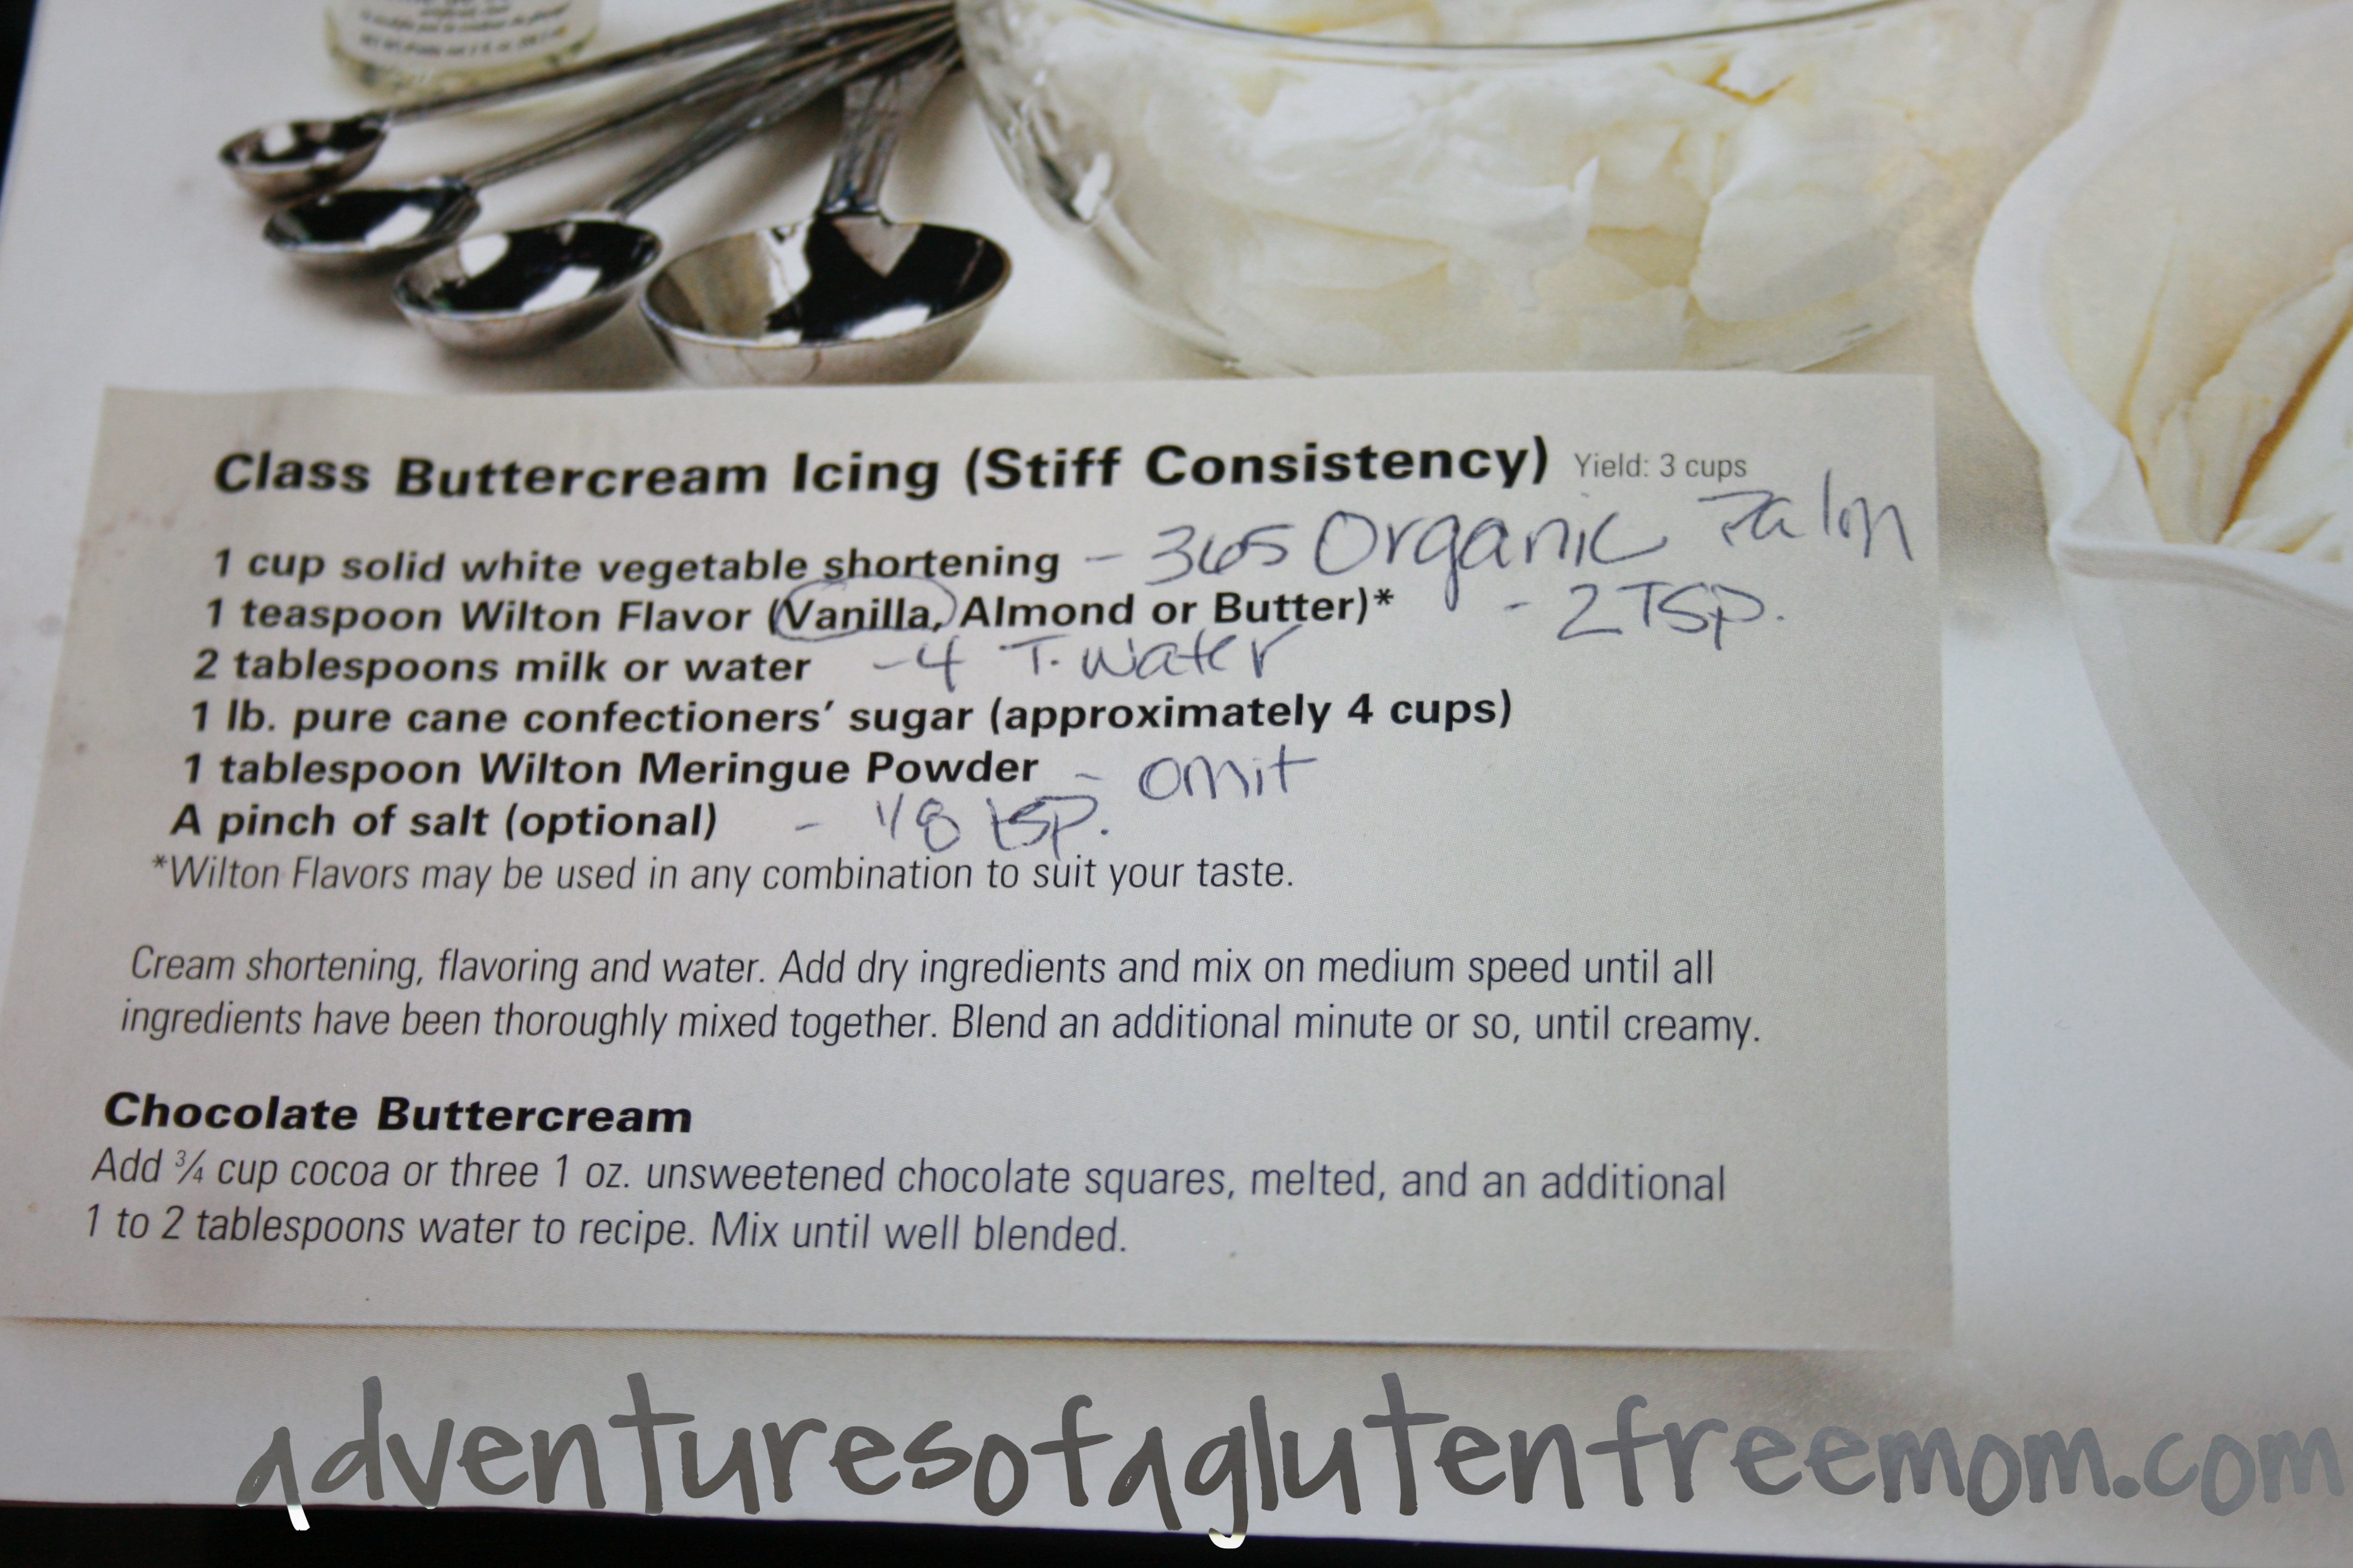 Class Buttercream Icing (Stiff Consistency) Yield: 3 cups
1 cup solid white vegetable shortening - 365 Organic Palm
1 teaspoon Wilton Flavor (Vanilla, Almond or Butter)* - 2 TSP.
2 tablespoons milk or water - 4 T. water
1 lb. pure cane confectioners’ sugar (approximately 4 cups)
1 tablespoon Wilton Meringue Powder - omit
A pinch of salt (optional) - 1/8 tsp.
*Wilton Flavors may be used in any combination to suit your taste.
Cream shortening, flavoring and water. Add dry ingredients and mix on medium speed until all
ingredients have been thoroughly mixed together. Blend an additional minute or so, until creamy.
Chocolate Buttercream
Add ¾ cup cocoa or three 1 oz. unsweetened chocolate squares, melted, and an additional
1 to 2 tablespoons water to recipe. Mix until well blended.
adventuresofaglutenfreemom.com